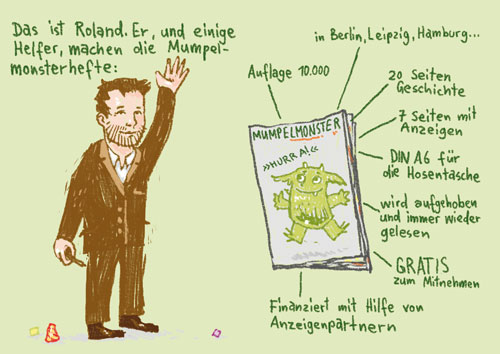 Das ist Roland. Er, und einige
Helfer, machen die Mumpel-
monsterhefte:
in Berlin, Leipzig, Hamburg...
Auflage 10.000
20 Seiten
Geschichte
7 Seiten mit
Anzeigen
MUMPELMONSTER
»HURRA!«
DIN A6 für
die Hosentasche
wird aufgehoben
und immer wieder
gelesen
GRATIS
zum Mitnehmen
Finanziert mit Hilfe von
Anzeigenpartnern